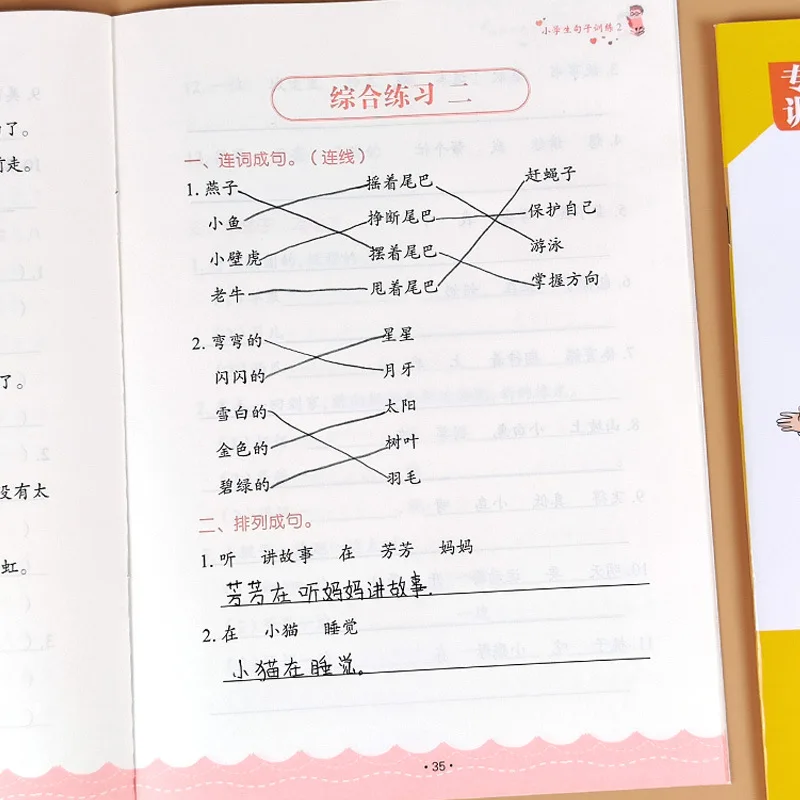 了。
前走。
了。
没有太
虹。
小学生句子训练2
综合练习 二
一、连词成句。（连线）
1. 燕子 摇着尾巴 赶蝇子
小鱼 挣断尾巴 保护自己
小壁虎 摆着尾巴 游泳
老牛 甩着尾巴 掌握方向
2. 弯弯的 星星
闪闪的 月牙
雪白的 太阳
金色的 树叶
碧绿的 羽毛
二、排列成句。
1. 听 讲故事 在 芳芳 妈妈
芳芳在听妈妈讲故事.
2. 在 小猫 睡觉
小猫在睡觉。
·35·
专
训